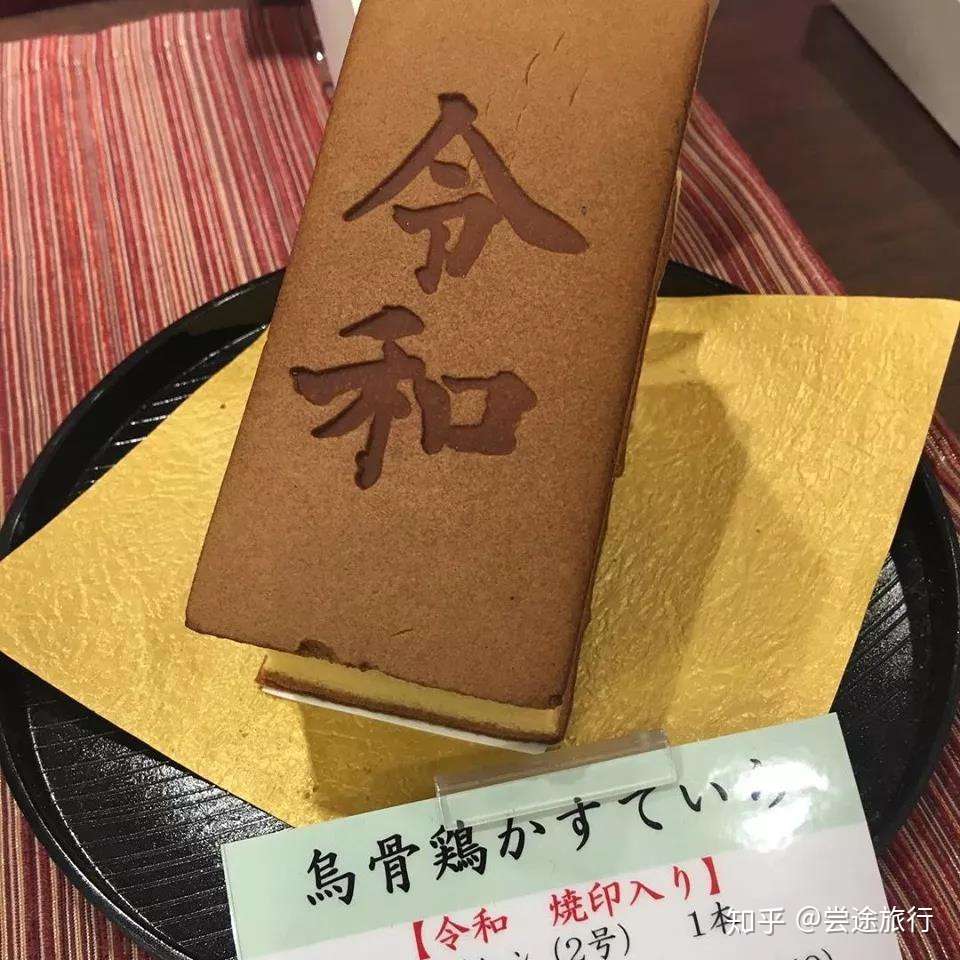 令和
烏骨鶏かすていら
【令和 焼印入り】
(2号) 1本
知乎 @尝途旅行